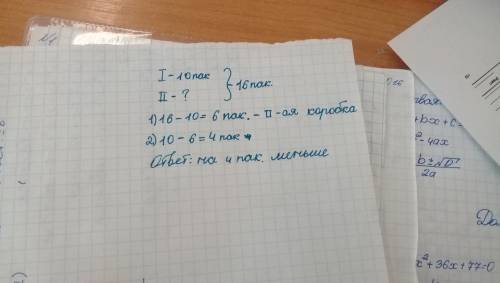 I - 10 пак
II - ?
} 16 пак.
1) 16 - 10 = 6 пак. - II-ая коробка
2) 10 - 6 = 4 пак
Ответ: на 4 пак. меньше
+ bx + c =
- 4ax
b ± √D
2a
x² + 36x + 77 = 0